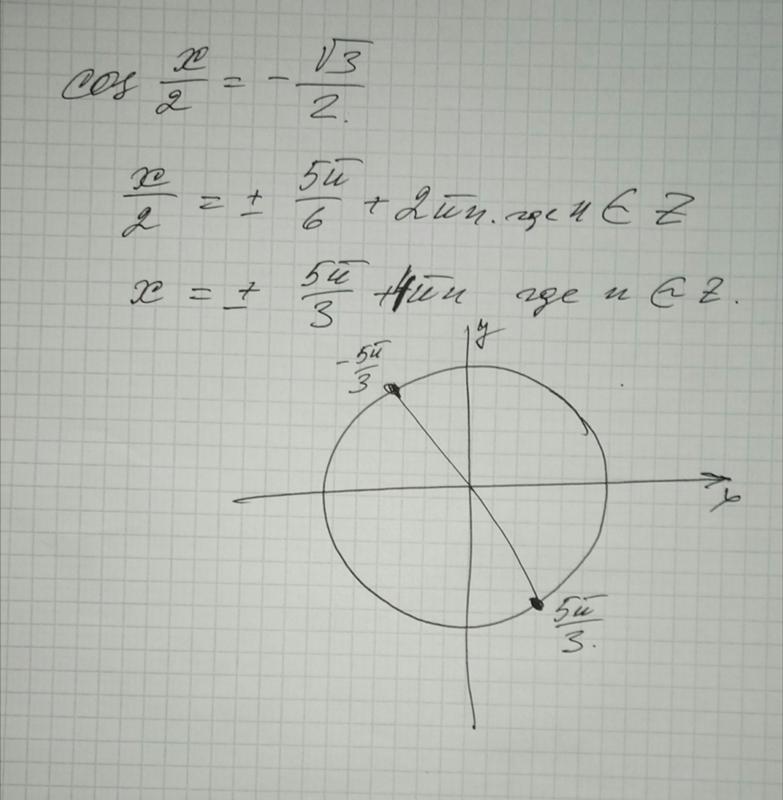 cos x/2 = - √3/2.
x/2 = ± 5π/6 + 2πn. где n ∈ Z
x = ± 5π/3 + 4πn где n ∈ Z.
y
-5π/3
x
5π/3.